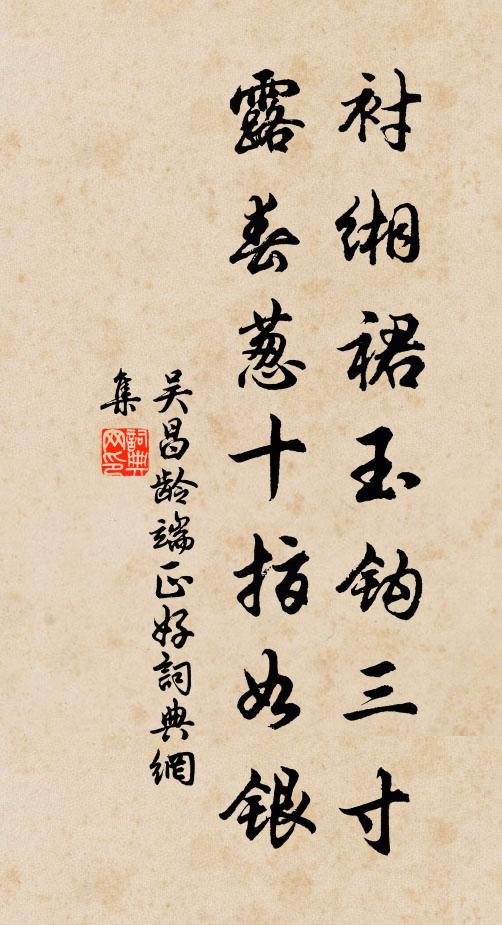 衬缃裙玉钩三寸
露春葱十指如银
吴昌龄端正好詞典網
集
詞典
网印